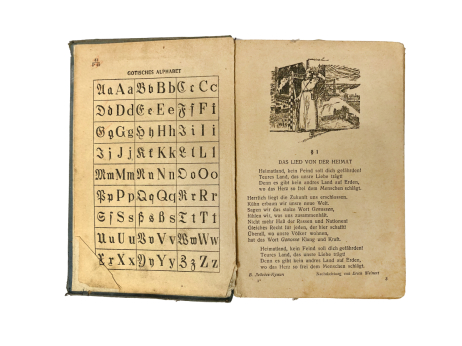 GOTISCHES ALPHABET
𝔄𝔞 Aa 𝔅𝔟 Bb ℭ𝔠 Cc
𝔇𝔡 Dd 𝔈𝔢 Ee 𝔉𝔣 Ff
𝔊𝔤 Gg ℌ𝔥 Hh ℑ𝔦 Ii
𝔍𝔧 Jj 𝔎𝔨 Kk 𝔏𝔩 Ll
𝔐𝔪 Mm 𝔑𝔫 Nn 𝔒𝔬 Oo
𝔓𝔭 Pp 𝔔𝔮 Qq ℜ𝔯 Rr
𝔖𝔣 Ss ß Ss 𝔗𝔱 Tt
𝔘𝔲 Uu 𝔙𝔳 Vv 𝔚𝔴 Ww
𝔛𝔵 Xx 𝔜𝔶 Yy ℨ𝔷 Zz
§ 1
DAS LIED VON DER HEIMAT
Heimatland, kein Feind soll dich gefährden!
Teures Land, das unsre Liebe trägt!
Denn es gibt kein andres Land auf Erden,
wo das Herz so frei dem Menschen schlägt.
Herrlich liegt die Zukunft uns erschlossen.
Kühn erbauen wir unsre neue Welt.
Sagen wir das stolze Wort Genossen,
fühlen wir, was uns zusammenhält.
Nicht mehr Haß der Rassen und Nationen!
Gleiches Recht für jeden, der hier schafft!
Überall, wo unsre Völker wohnen,
hat das Wort Genosse Klang und Kraft.
Heimatland, kein Feind soll dich gefährden!
Teures Land, das unsre Liebe trägt!
Denn es gibt kein andres Land auf Erden,
wo das Herz so frei dem Menschen schlägt.
Nachdichtung von Erich Weinert